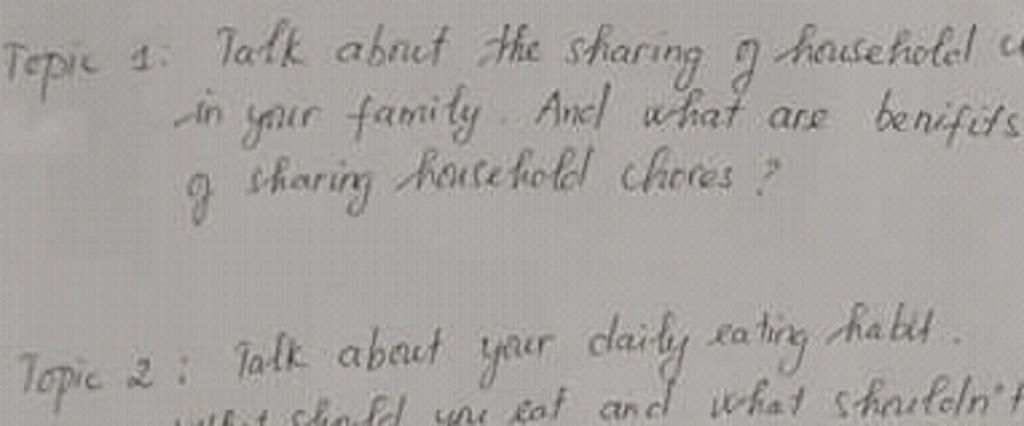 Topic 1: Talk about the sharing of household
in your family. And what are benifits
of sharing household chores?
Topic 2: Talk about your daily eating habit.
what should you eat and what shouldn't